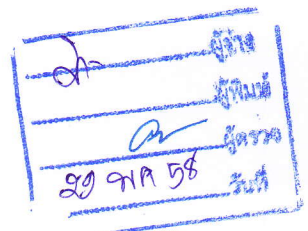 ผู้ร่าง
ผู้พิมพ์
ผู้ตรวจ
29 พค 58 วันที่